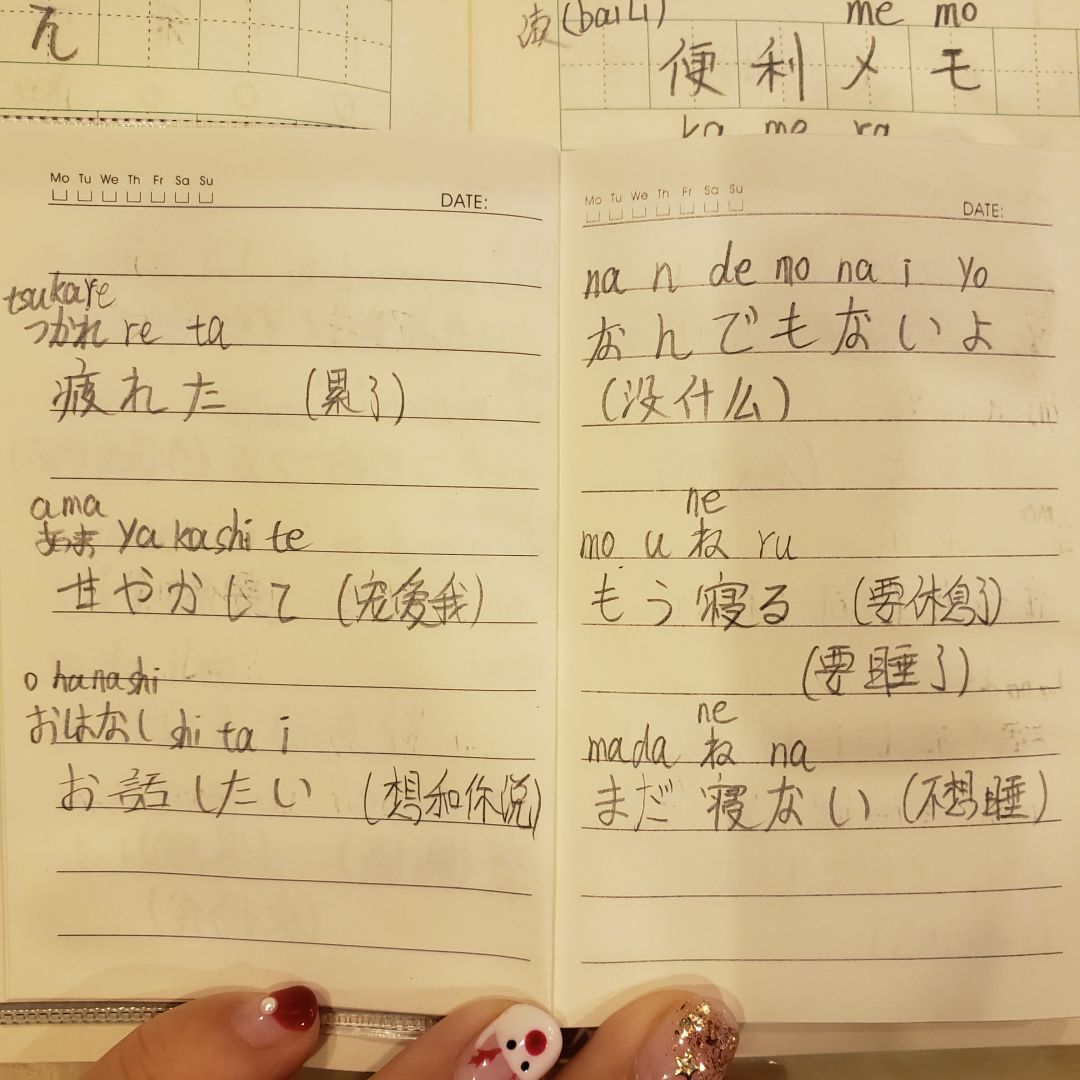 ん
(baiLi) me mo
便利メモ
ka me ra
Mo Tu We Th Fr Sa Su
DATE:
tsukare
つかれ re ta
疲れた (累了)
ama
あま ya kashi te
甘やかして (宠爱我)
o hanashi
おはなし shi ta i
お話したい (想和你说)
Mo Tu We Th Fr Sa Su
DATE:
na n de mo na i yo
なんでもないよ
(没什么)
ne
mo u ね ru
もう寝る (要休息了)
(要睡了)
ne
mada ね na
まだ寝ない (不想睡)